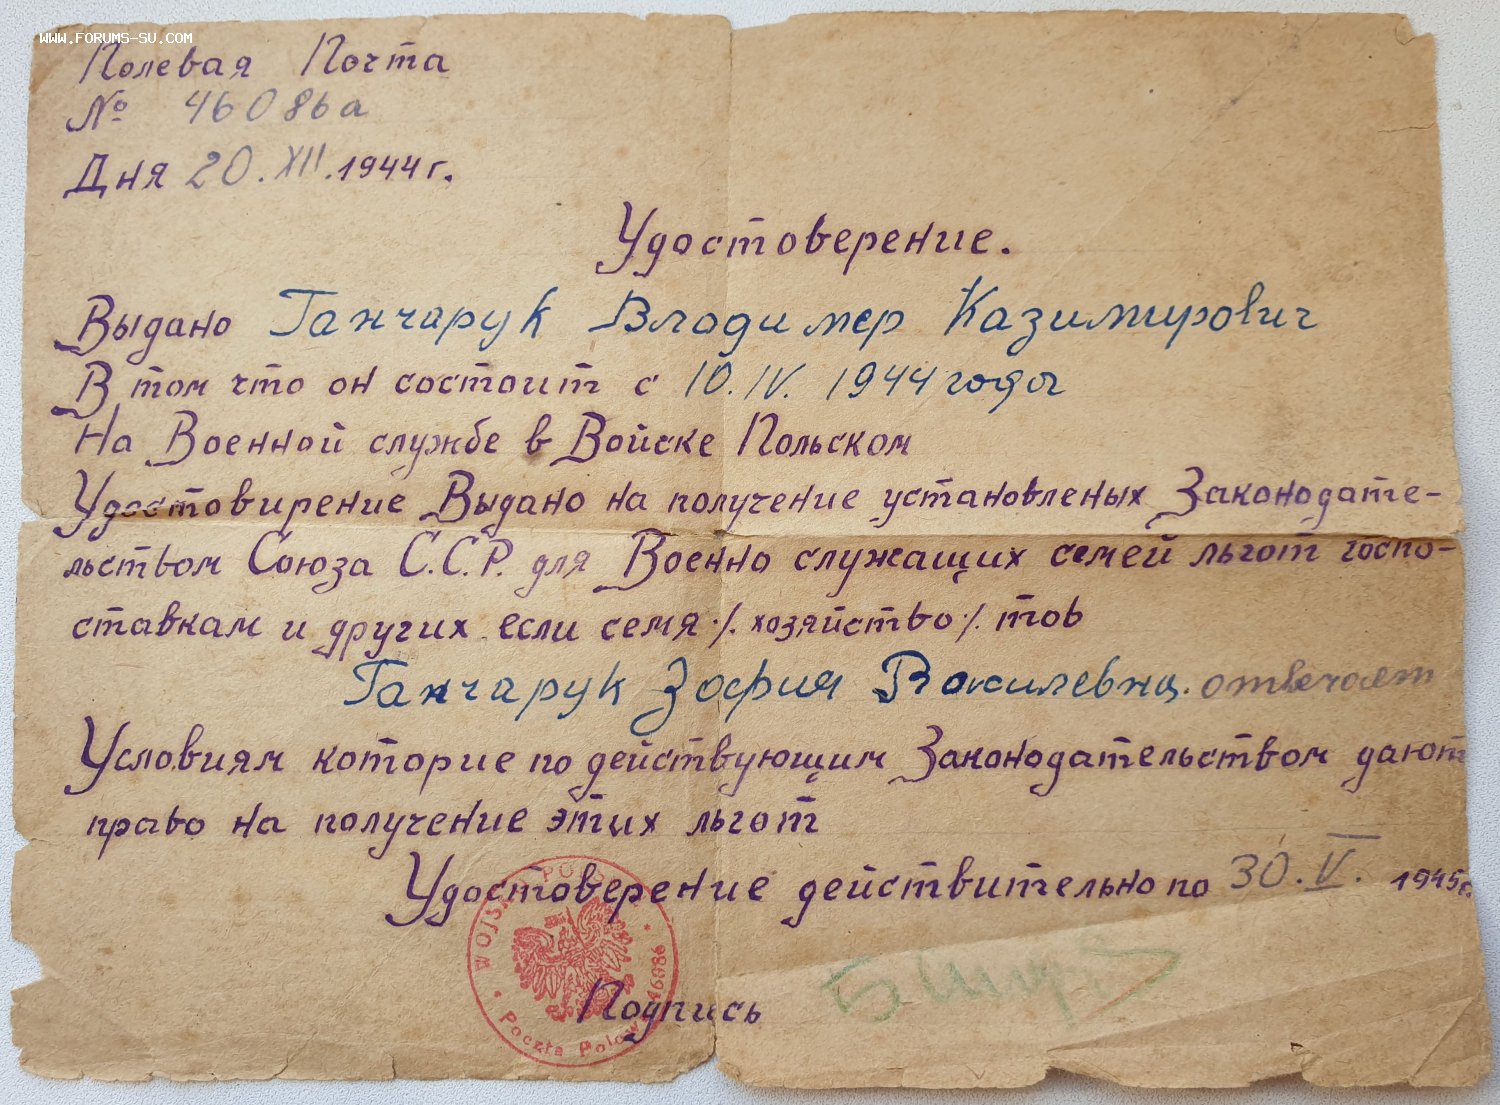 WWW.FORUMS-SU.COM
Полевая Почта
№ 46086а
Дня 20.XII.1944г.
Удостоверение.
Выдано Ганчарук Владимер Казимирович
В том что он состоит с 10.IV.1944 года
На Военной службе в Войске Польском
Удостовирение Выдано на получение установленых Законодате-
льством Союза С.С.Р. для Военно служащих семей льгот госпо-
ставкам и других если семя ·/. хозяйство ·/. тов
Ганчарук Зофия Василевна. отвечает
Условиям которие по действующим Законодательством дают
право на получение этих льгот
Удостоверение действительно по 30.V. 1945г.
WOJSKO POLSKIE
Poczta Polowa 46086
Подпись